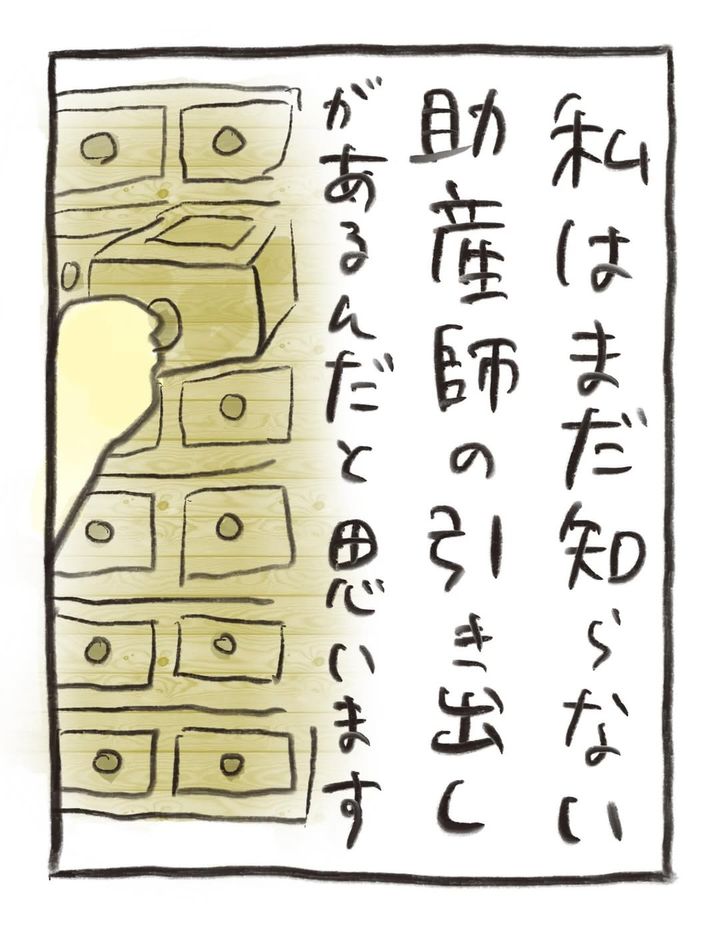 私はまだ知らない
助産師の引き出し
があるんだと思います